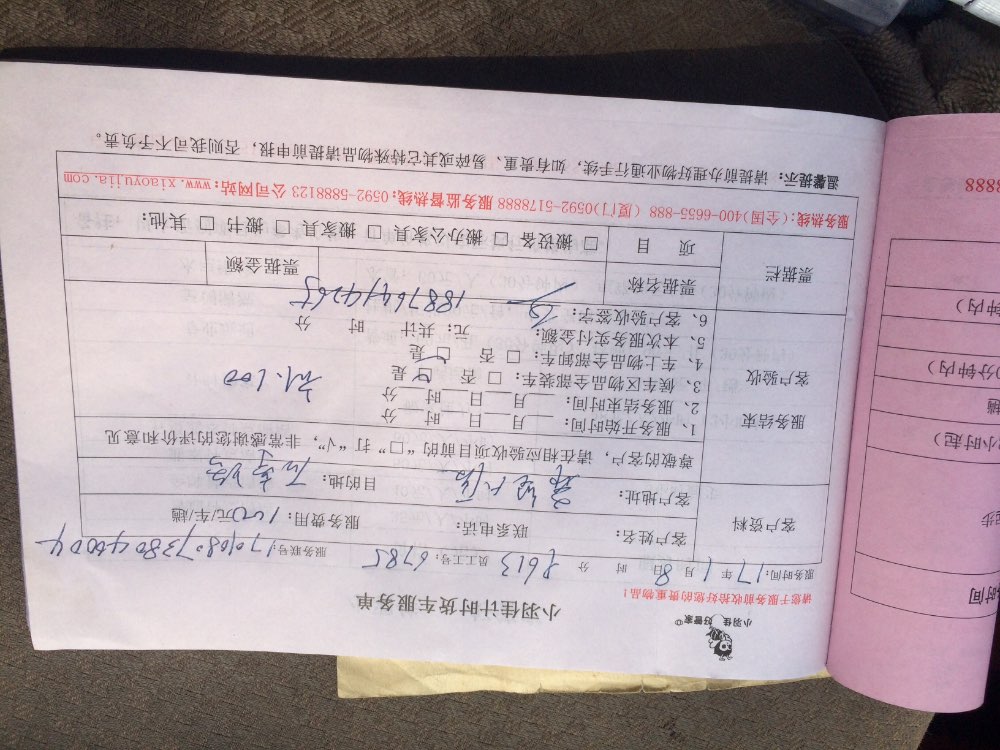 小羽佳 好管家
小羽佳计时货车服务单
请您于服务前收拾好您的贵重物品!
服务时间: 17 年 1 月 8 日 时 分 员工工号: 6785 服务联号:
客户资料
客户姓名: 联系电话: 服务费用: 100 元/车/趟
客户地址: 目的地:
服务结束
客户验收
尊敬的客户, 请在相应验收项目前的 “□” 打 “√”, 非常感谢您的评价和意见
1、服务开始时间: 月 日 时 分
2、服务结束时间: 月 日 时 分
3、候车区物品全部装车: □ 否 □ 是
4、车上物品全部卸车: □ 否 □ 是
5、本次服务实付金额: 元; 共计 时 分
6、客户验收签字: 18876414265
票据栏
票据名称
票据金额
项 目
□ 搬设备 □ 搬办公家具 □ 搬家具 □ 搬书 □ 其他:
服务热线: (全国)400-6655-888 (厦门)0592-5178888 服务监督热线: 0592-5888123 公司网站: www.xiaoyujia.com
温馨提示: 请提前办理好物业通行手续, 如有贵重、易碎或其它特殊物品请提前申报, 否则我司不予负责。